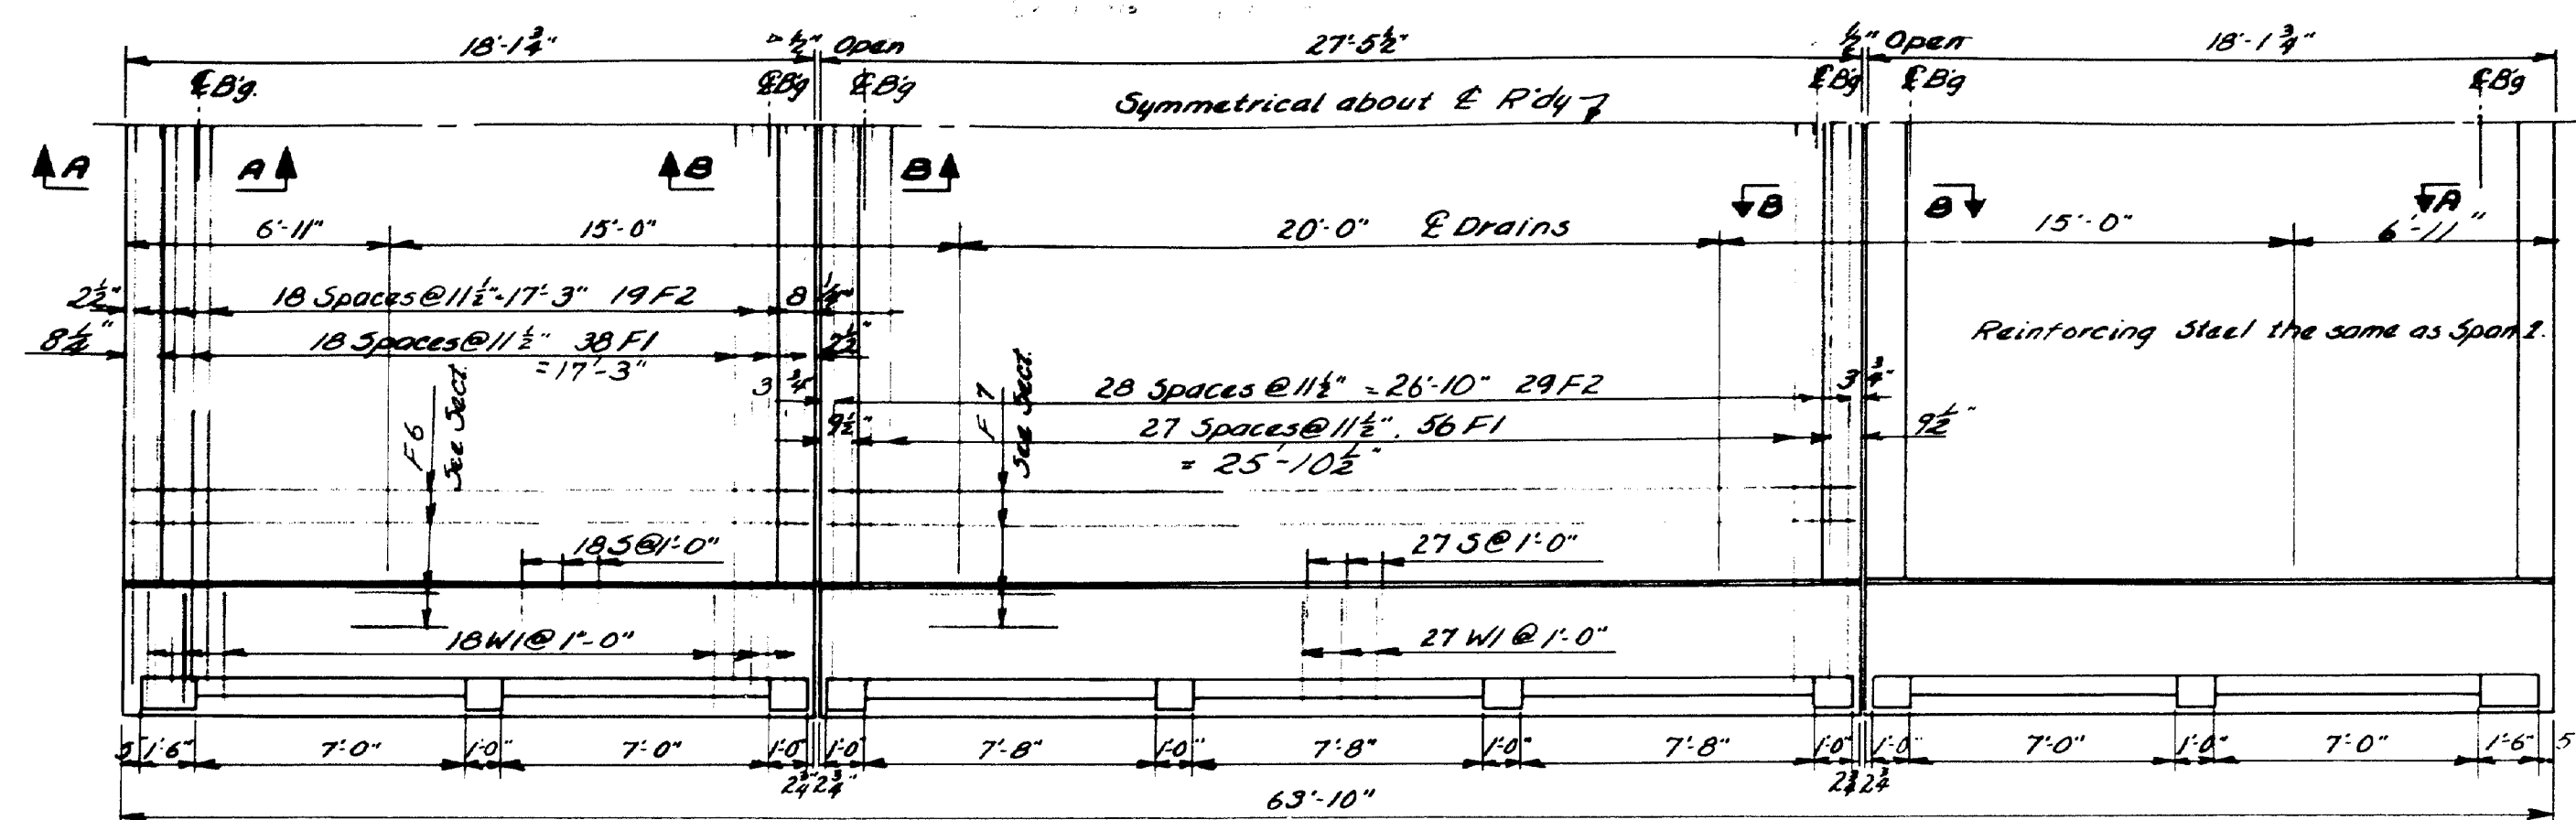 18'-1¾" ½" Open 27'-5½" ½" Open 18'-1¾"
℄ B'g. ℄ B'g ℄ B'g ℄ B'g ℄ B'g ℄ B'g
Symmetrical about ℄ R'dy
A A B B B B A
6'-11" 15'-0" 20'-0" ℄ Drains 15'-0" 6'-11"
2½" 18 Spaces @ 11½" = 17'-3" 19 F2 8¼"
8¼" 18 Spaces @ 11½" 38 F1 2½"
= 17'-3"
Reinforcing Steel the same as Span 1.
3¾" 28 Spaces @ 11½" = 26'-10" 29 F2 3¾"
9½" 27 Spaces @ 11½", 56 F1 9½"
= 25'-10½"
F6
See Sect.
F7
See Sect.
18 S @ 1'-0" 27 S @ 1'-0"
18 W1 @ 1'-0" 27 W1 @ 1'-0"
5 1'-6" 7'-0" 1'-0" 7'-0" 1'-0" 1'-0" 7'-8" 1'-0" 7'-8" 1'-0" 7'-8" 1'-0" 1'-0" 7'-0" 1'-0" 7'-0" 1'-6" 5
2¾" 2¾" 2¾ 2¾
63'-10"